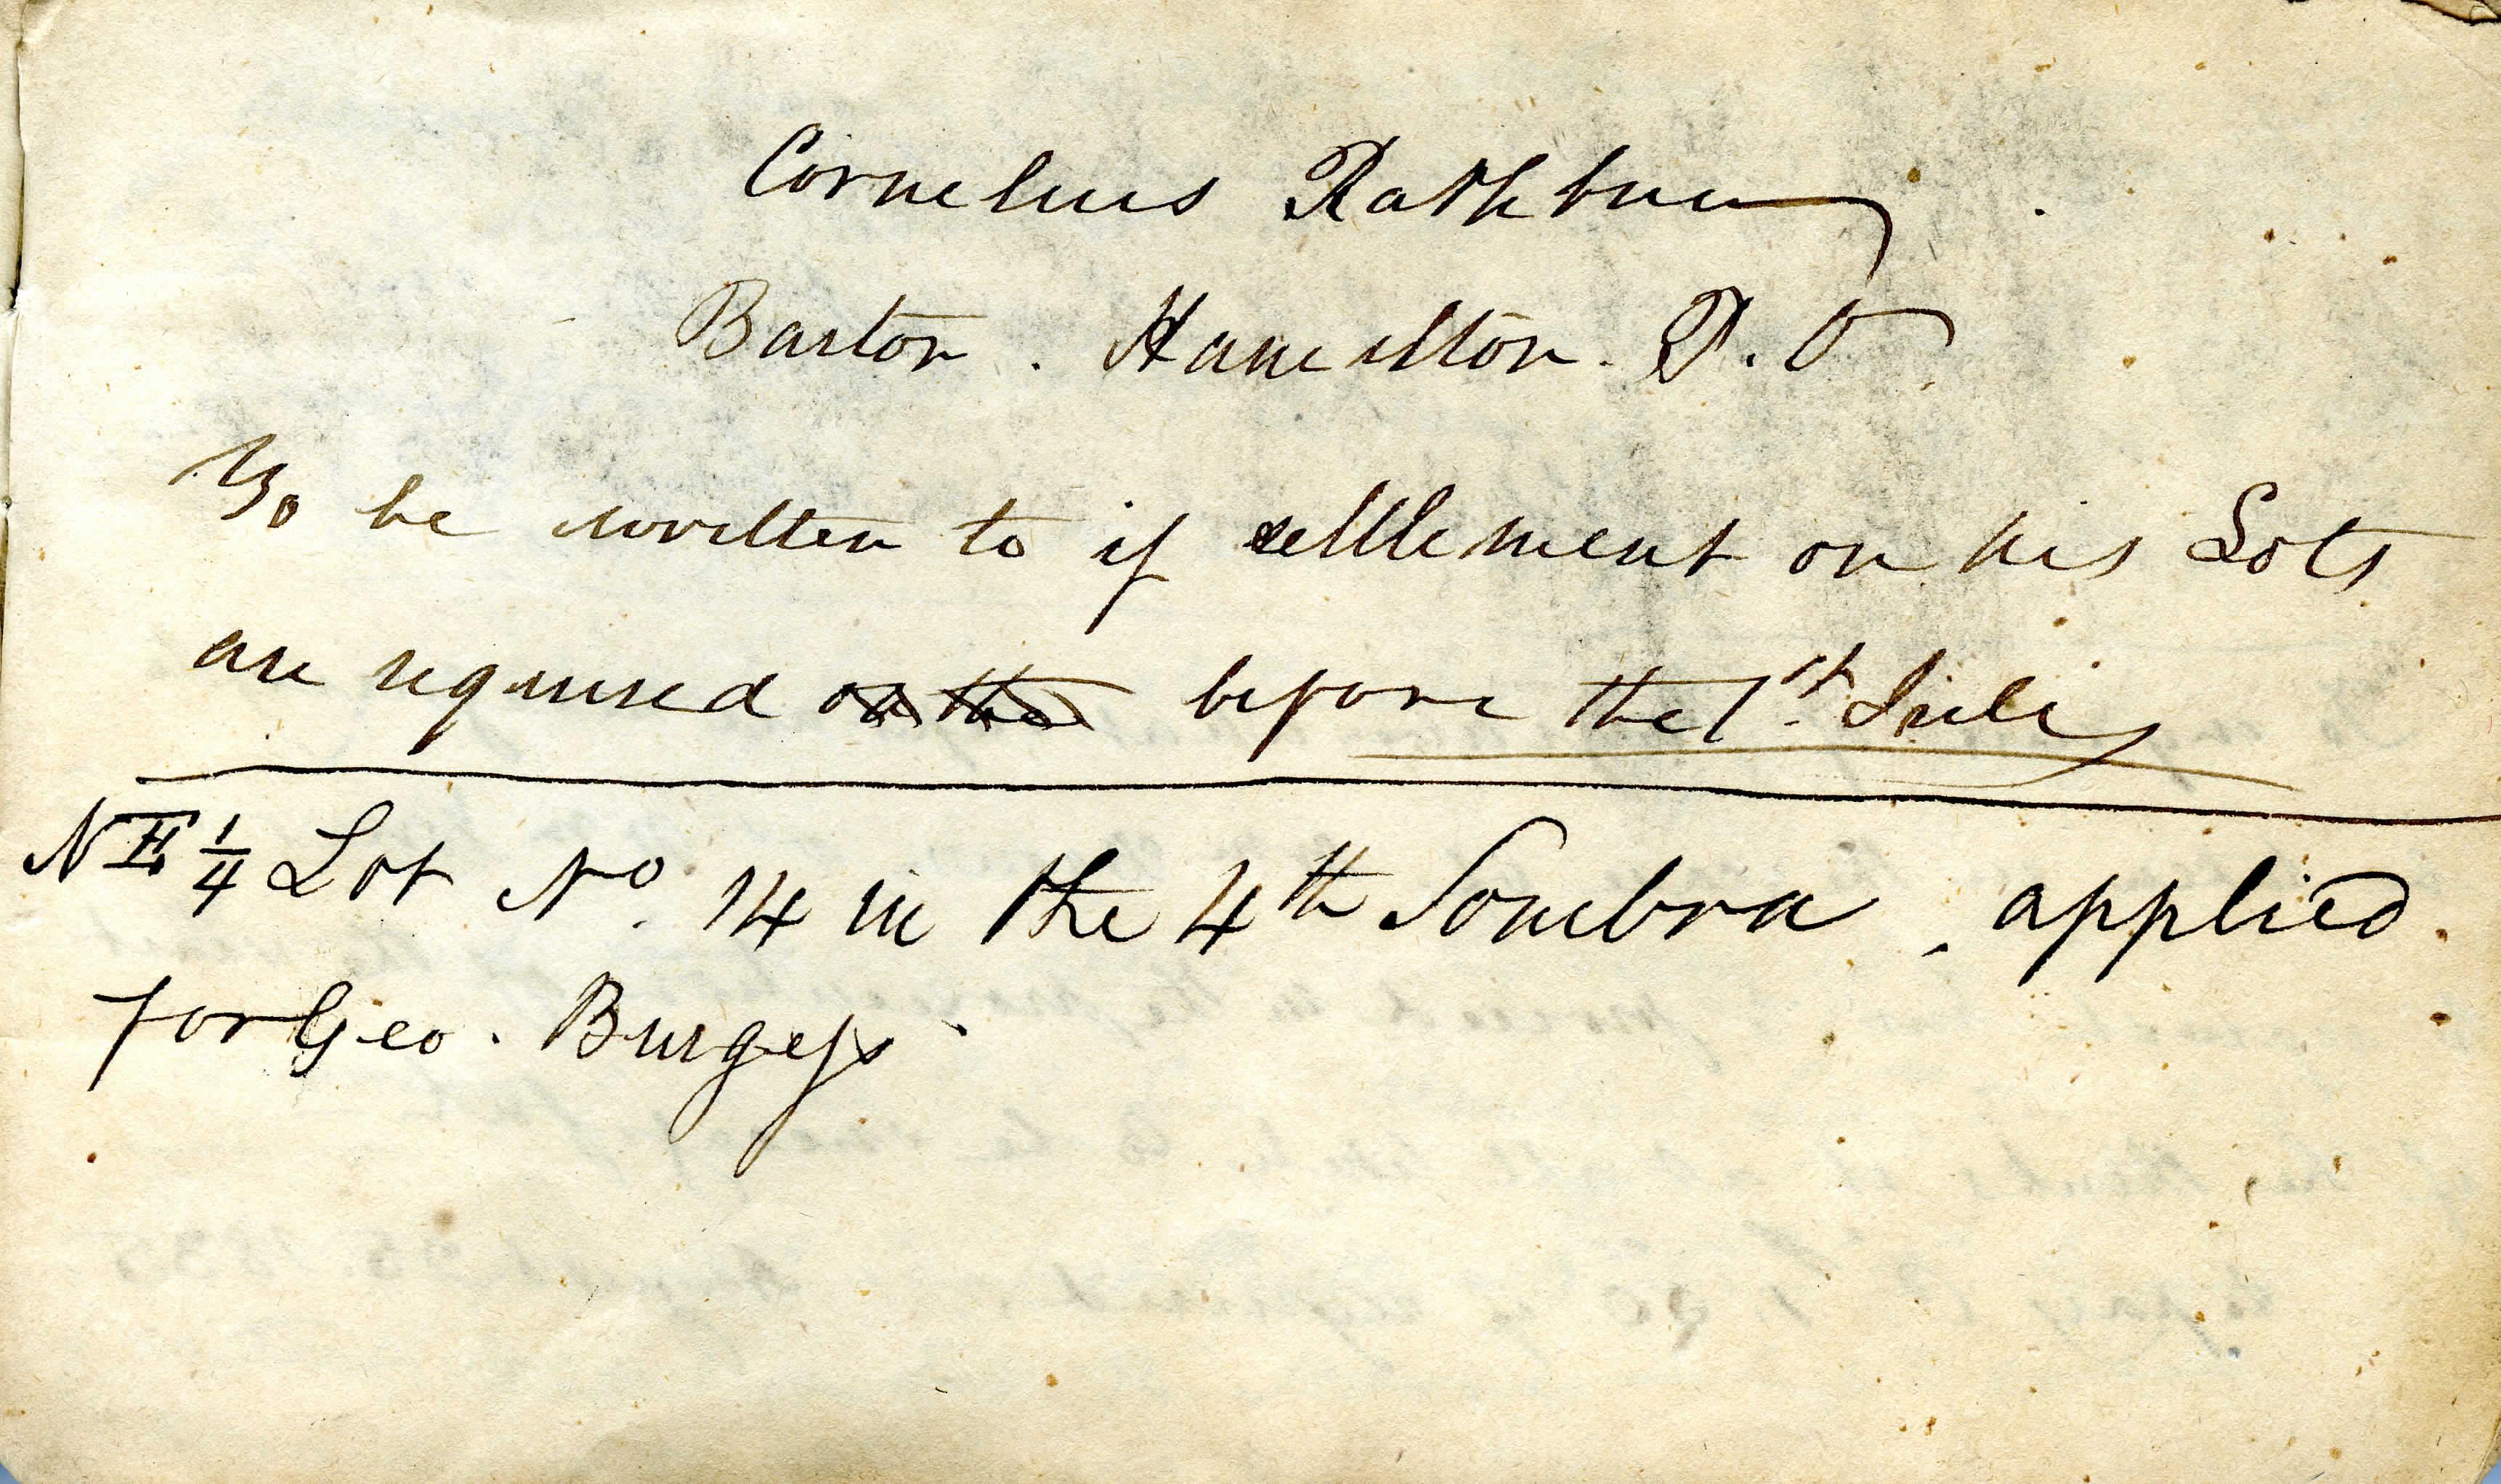 Cornelius Rathbun
Barton. Hamilton. P. O.
To be written to if settlement on his Lots
are required on the before the 1st. July
NE 1/4 Lot No. 14 in the 4th Sombra, applied
for Geo. Burgess